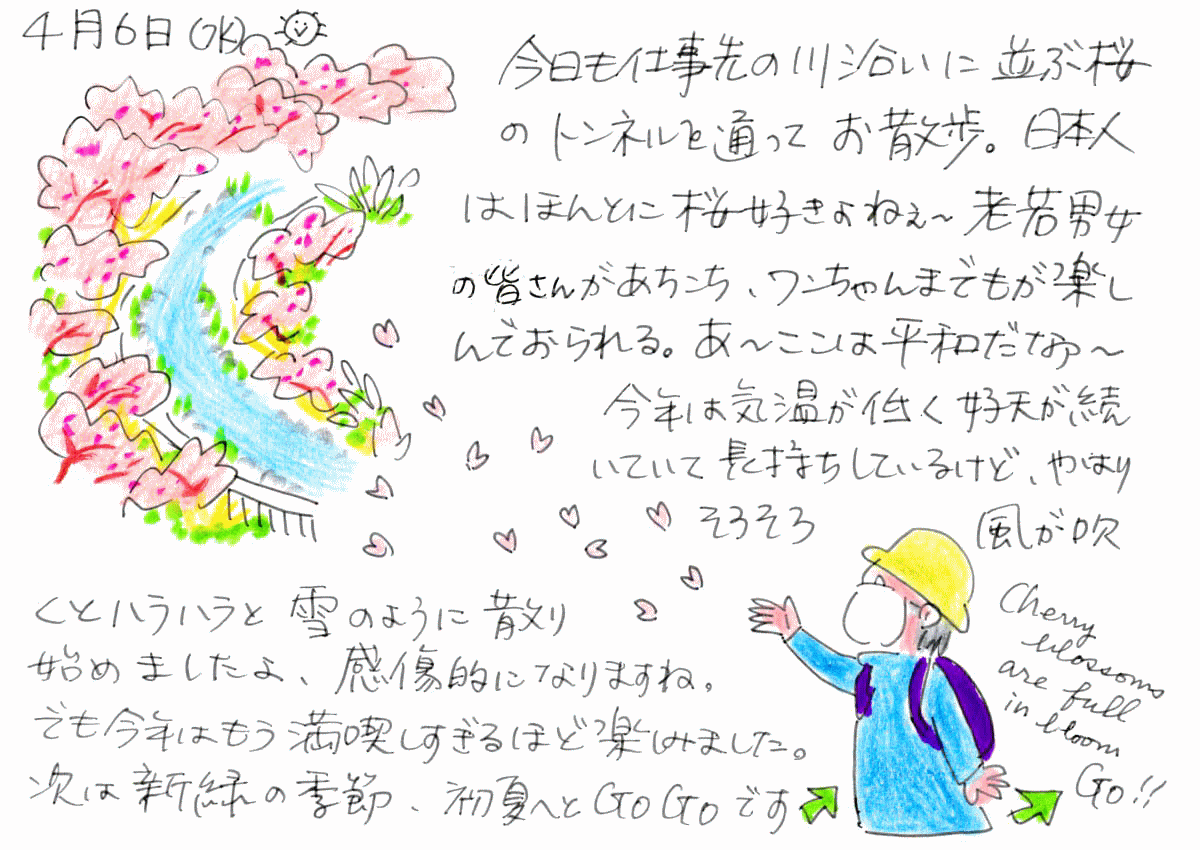 4月6日(水)
今日も仕事先の川沿いに並ぶ桜
のトンネルを通ってお散歩。日本人
はほんとに桜好きよねぇ～老若男女
の皆さんがあちこち、ワンちゃんまでもが楽し
んでおられる。あ～ここは平和だなァ～
今年は気温が低く好天が続
いていて長持ちしているけど、やはり
そろそろ 風が吹
くとハラハラと雪のように散り
始めましたよ、感傷的になりますね。
でも今年はもう満喫しすぎるほど楽しみました。
次は新緑の季節、初夏へとGO GOです
Cherry
blossoms
are full
in bloom
Go!!